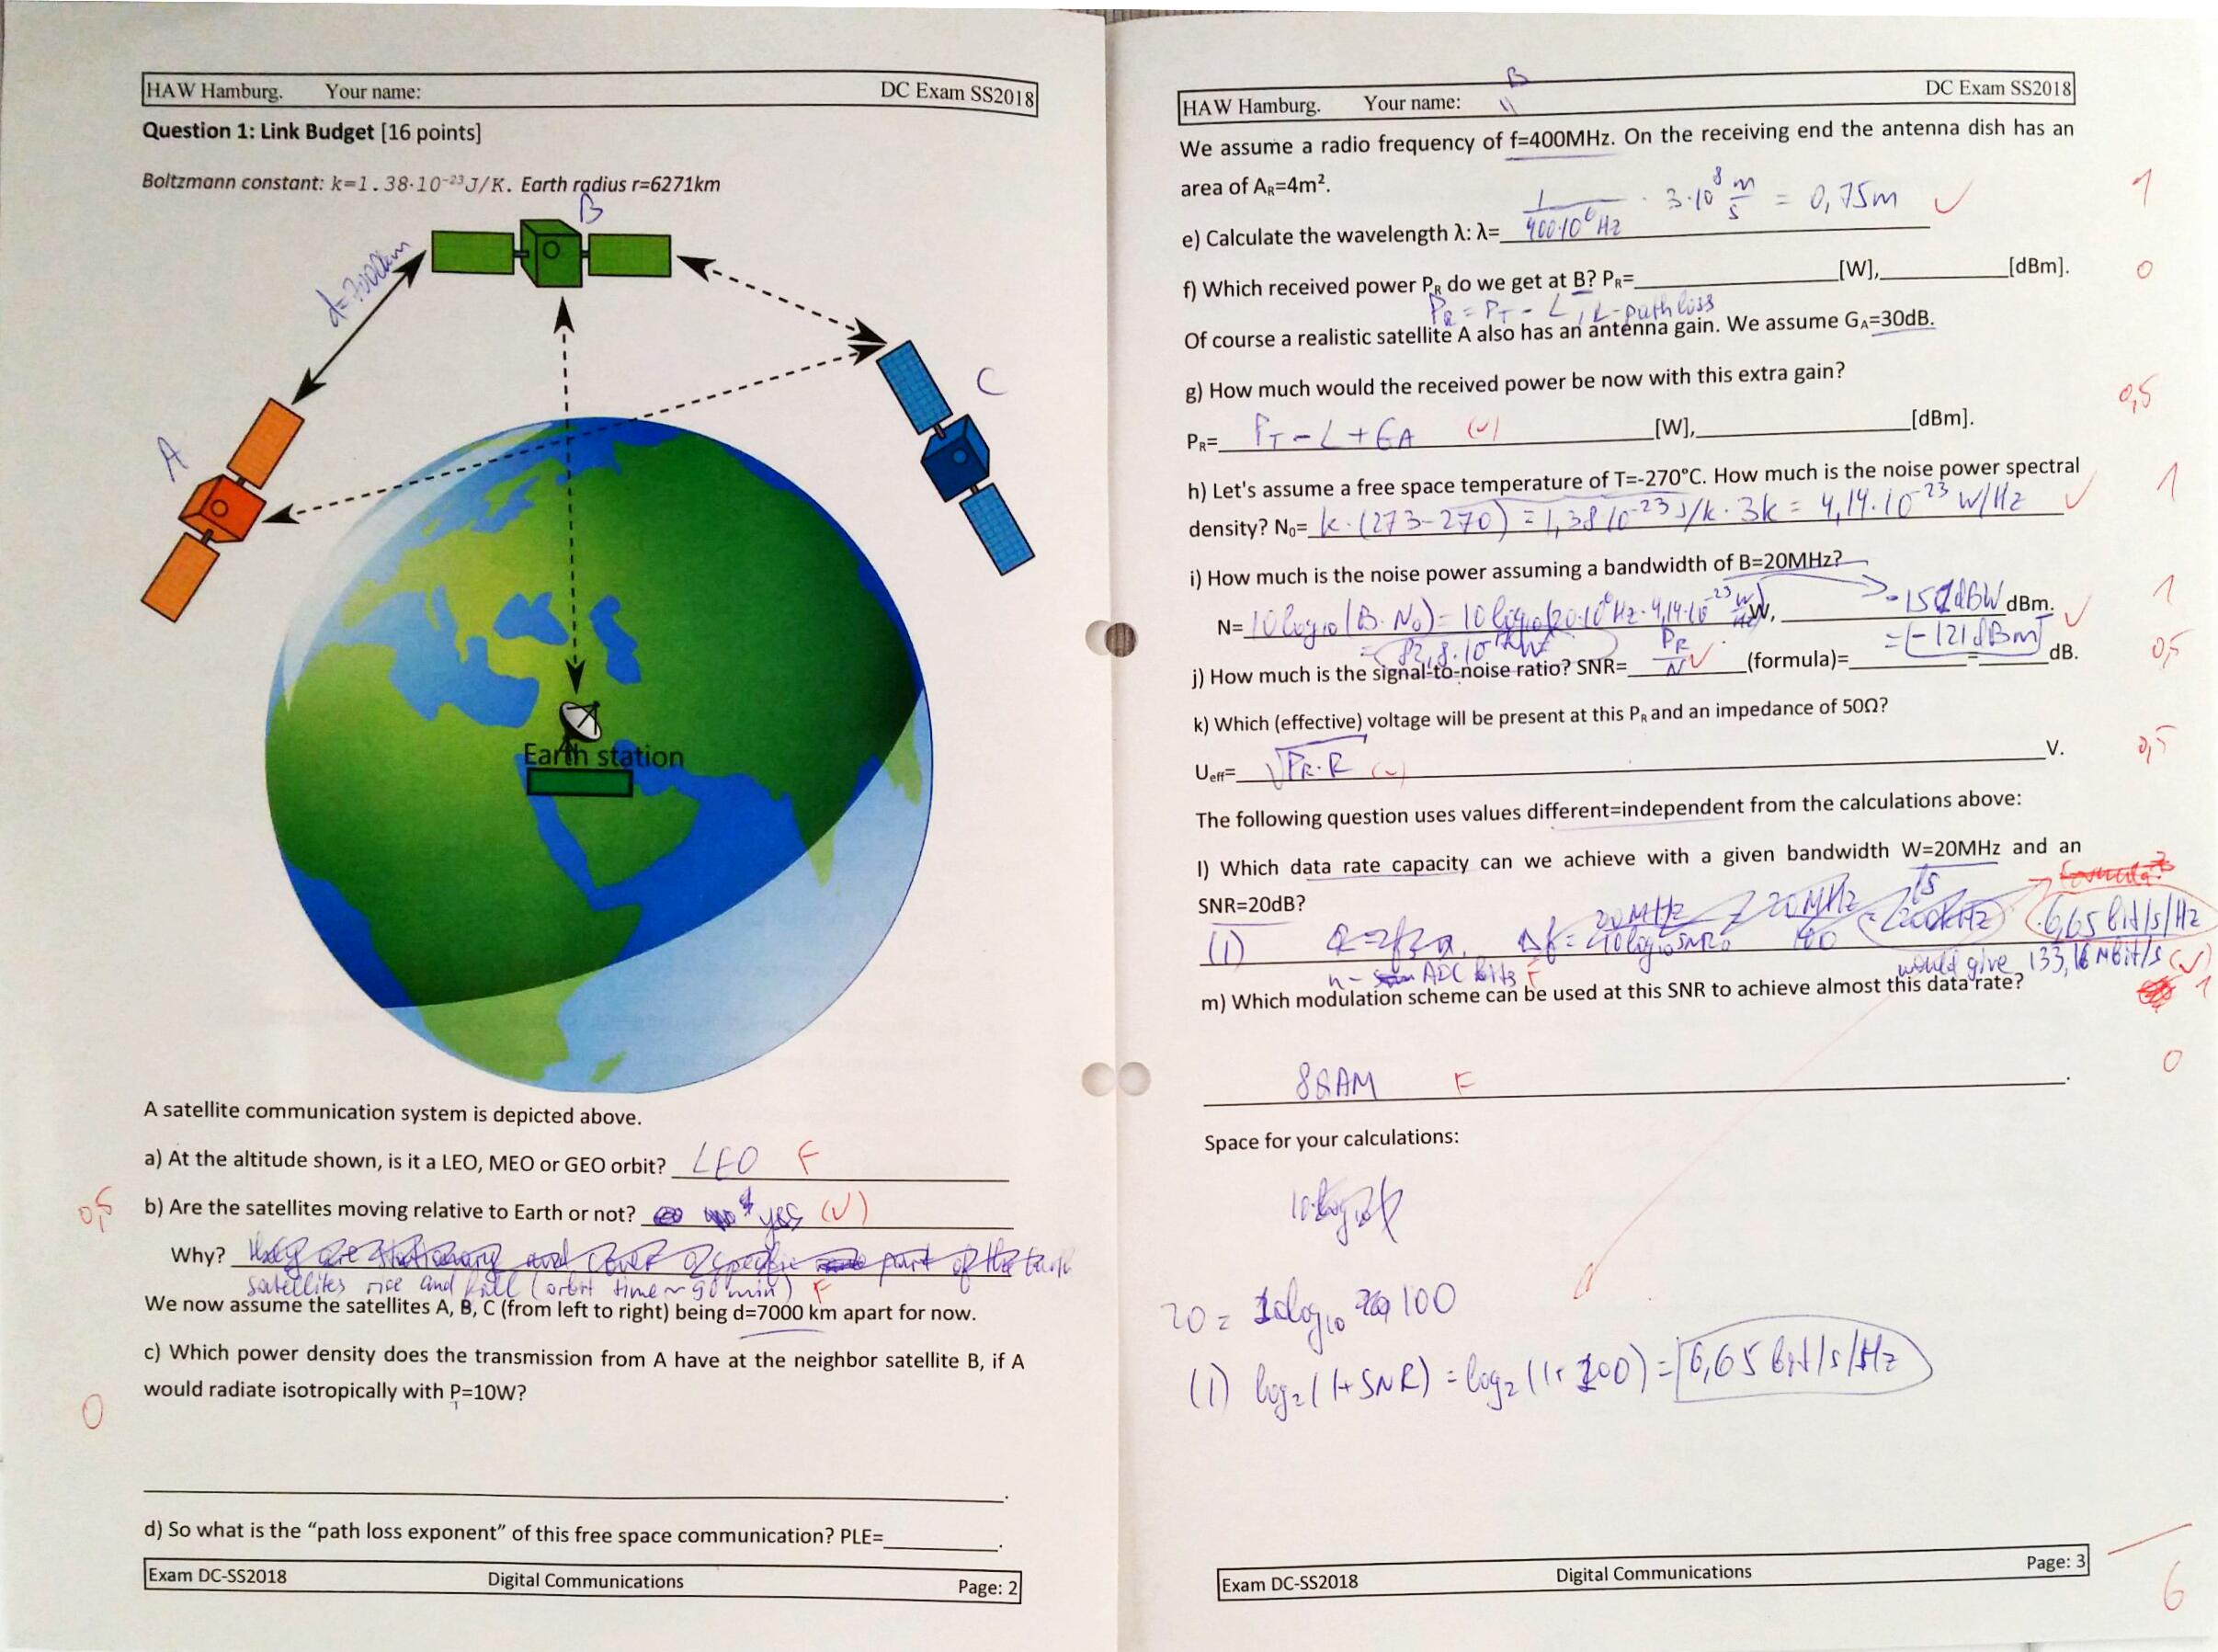 HAW Hamburg. Your name: DC Exam SS2018
Question 1: Link Budget [16 points]
Boltzmann constant: k=1.38·10⁻²³J/K. Earth radius r=6271km
B
d=7000km
C
A
Earth station
A satellite communication system is depicted above.
a) At the altitude shown, is it a LEO, MEO or GEO orbit? LEO F
0,5 b) Are the satellites moving relative to Earth or not? yes (✓)
Why? they are stationary and cover a specific part of the Earth
satellites rise and fall (orbit time ~ 90 min) F
We now assume the satellites A, B, C (from left to right) being d=7000 km apart for now.
c) Which power density does the transmission from A have at the neighbor satellite B, if A
would radiate isotropically with P=10W?
T
0
d) So what is the “path loss exponent” of this free space communication? PLE=________.
Exam DC-SS2018 Digital Communications Page: 2
B
HAW Hamburg. Your name: DC Exam SS2018
We assume a radio frequency of f=400MHz. On the receiving end the antenna dish has an
area of A_R=4m².
e) Calculate the wavelength λ: λ= 1/400·10⁶Hz · 3·10⁸ m/s = 0,75m ✓ 1
f) Which received power P_R do we get at B? P_R=________[W],________[dBm]. 0
P_R = P_T - L, L-path loss
Of course a realistic satellite A also has an antenna gain. We assume G_A=30dB.
g) How much would the received power be now with this extra gain? 0,5
P_R= P_T - L + G_A (✓) [W],________[dBm].
h) Let's assume a free space temperature of T=-270°C. How much is the noise power spectral
density? N₀= k·(273-270) = 1,38·10⁻²³ J/K · 3K = 4,14·10⁻²³ W/Hz ✓ 1
i) How much is the noise power assuming a bandwidth of B=20MHz?
N= 10log₁₀(B·N₀) = 10log₁₀(20·10⁶Hz·4,14·10⁻²³ W/Hz) W, -151dBW dBm. ✓ 1
= (-121dBm)
j) How much is the signal-to-noise ratio? SNR= P_R/N ✓ (formula)=________=____dB. 0,5
k) Which (effective) voltage will be present at this P_R and an impedance of 50Ω?
U_eff= √P_R·R (✓) V. 0,5
The following question uses values different=independent from the calculations above:
l) Which data rate capacity can we achieve with a given bandwidth W=20MHz and an
formula?
SNR=20dB?
(1) Δf = 20MHz/10log₁₀SNR = 20MHz/100 = 200kHz 6,65 bit/s/Hz
n- ADC bits F would give 133,16 Mbit/s (✓)
m) Which modulation scheme can be used at this SNR to achieve almost this data rate? 1
8QAM F 0
Space for your calculations:
20 = 10log₁₀ 100
(1) log₂(1+SNR) = log₂(1+100) = 6,65 bit/s/Hz
Exam DC-SS2018 Digital Communications Page: 3
6